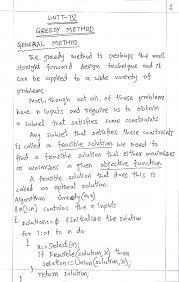 1
UNIT-IV
GREEDY METHOD
GENERAL METHOD
The greedy method is perhaps the most
straight forward design technique and it
can be applied to a wide variety of
problems.
Most, though not all, of these problems
have n inputs and require us to obtain
a subset that satisfies some constraints
Any subset that satisfies these constraints
is called a feasible solution. We need to
find a feasible solution that either maximizes
or minimizes a given objective function.
A feasible solution that does this is
called an optimal solution.
Algorithm Greedy(a,n)
// a[1:n] contains the n inputs
{
solution:=0 // Initialize the solution
for i:=1 to n do
{
x:=Select(a);
if Feasible(solution,x) then
solution:=Union(solution,x);
}
return solution;